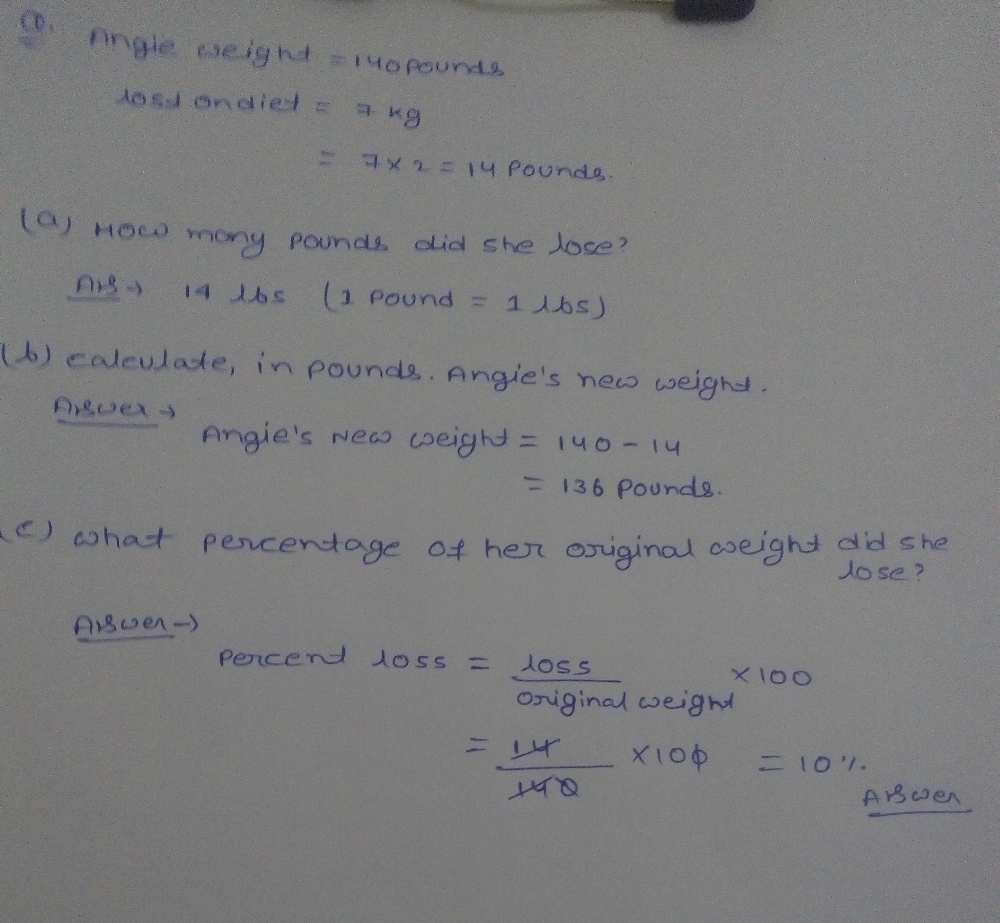 ①. Angie weight = 140 pounds
lost on diet = 7 kg
= 7 x 2 = 14 Pounds.
(a) How many pounds did she lose?
Ans → 14 lbs (1 Pound = 1 lbs)
(b) calculate, in pounds. Angie's new weight.
Answer →
Angie's New weight = 140 - 14
= 136 Pounds.
(c) what percentage of her original weight did she
lose?
Answer →
Percent loss = loss / original weight × 100
= 14 / 140 × 100 = 10%.
Answer